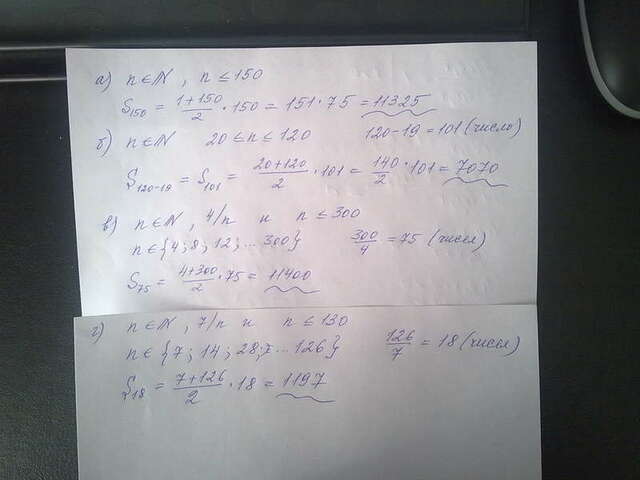 а) n ∈ N, n ≤ 150
S₁₅₀ = (1+150)/2 · 150 = 151 · 75 = 11325
б) n ∈ N 20 ≤ n ≤ 120 120-19 = 101 (число)
S₁₂₀₋₁₉ = S₁₀₁ = (20+120)/2 · 101 = 140/2 · 101 = 7070
в) n ∈ N, 4/n и n ≤ 300
n ∈ {4; 8; 12; ... 300} 300/4 = 75 (чисел)
S₇₅ = (4+300)/2 · 75 = 11400
г) n ∈ N, 7/n и n ≤ 130
n ∈ {7; 14; 28; ... 126} 126/7 = 18 (чисел)
S₁₈ = (7+126)/2 · 18 = 1197